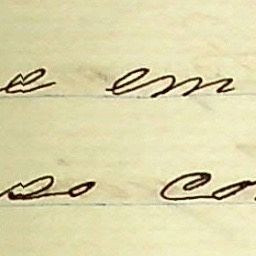 e em
so co